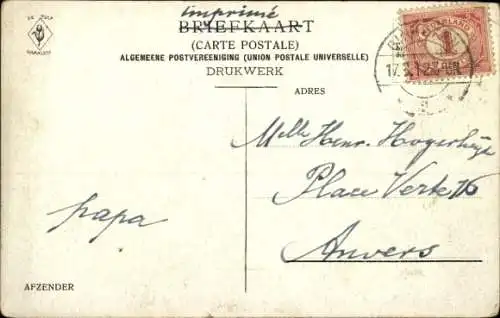 imprimé
BRIEFKAART
(CARTE POSTALE)
ALGEMEENE POSTVEREENIGING (UNION POSTALE UNIVERSELLE)
DRUKWERK
ADRES
Melle Henr. Hogersheijs
Place Verte 16
Anvers
papa
AFZENDER